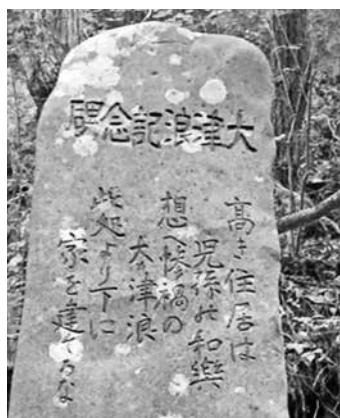 大津浪記念碑
高き住居は
児孫の和樂
想へ惨禍の
大津浪
此処より下に
家を建てるな